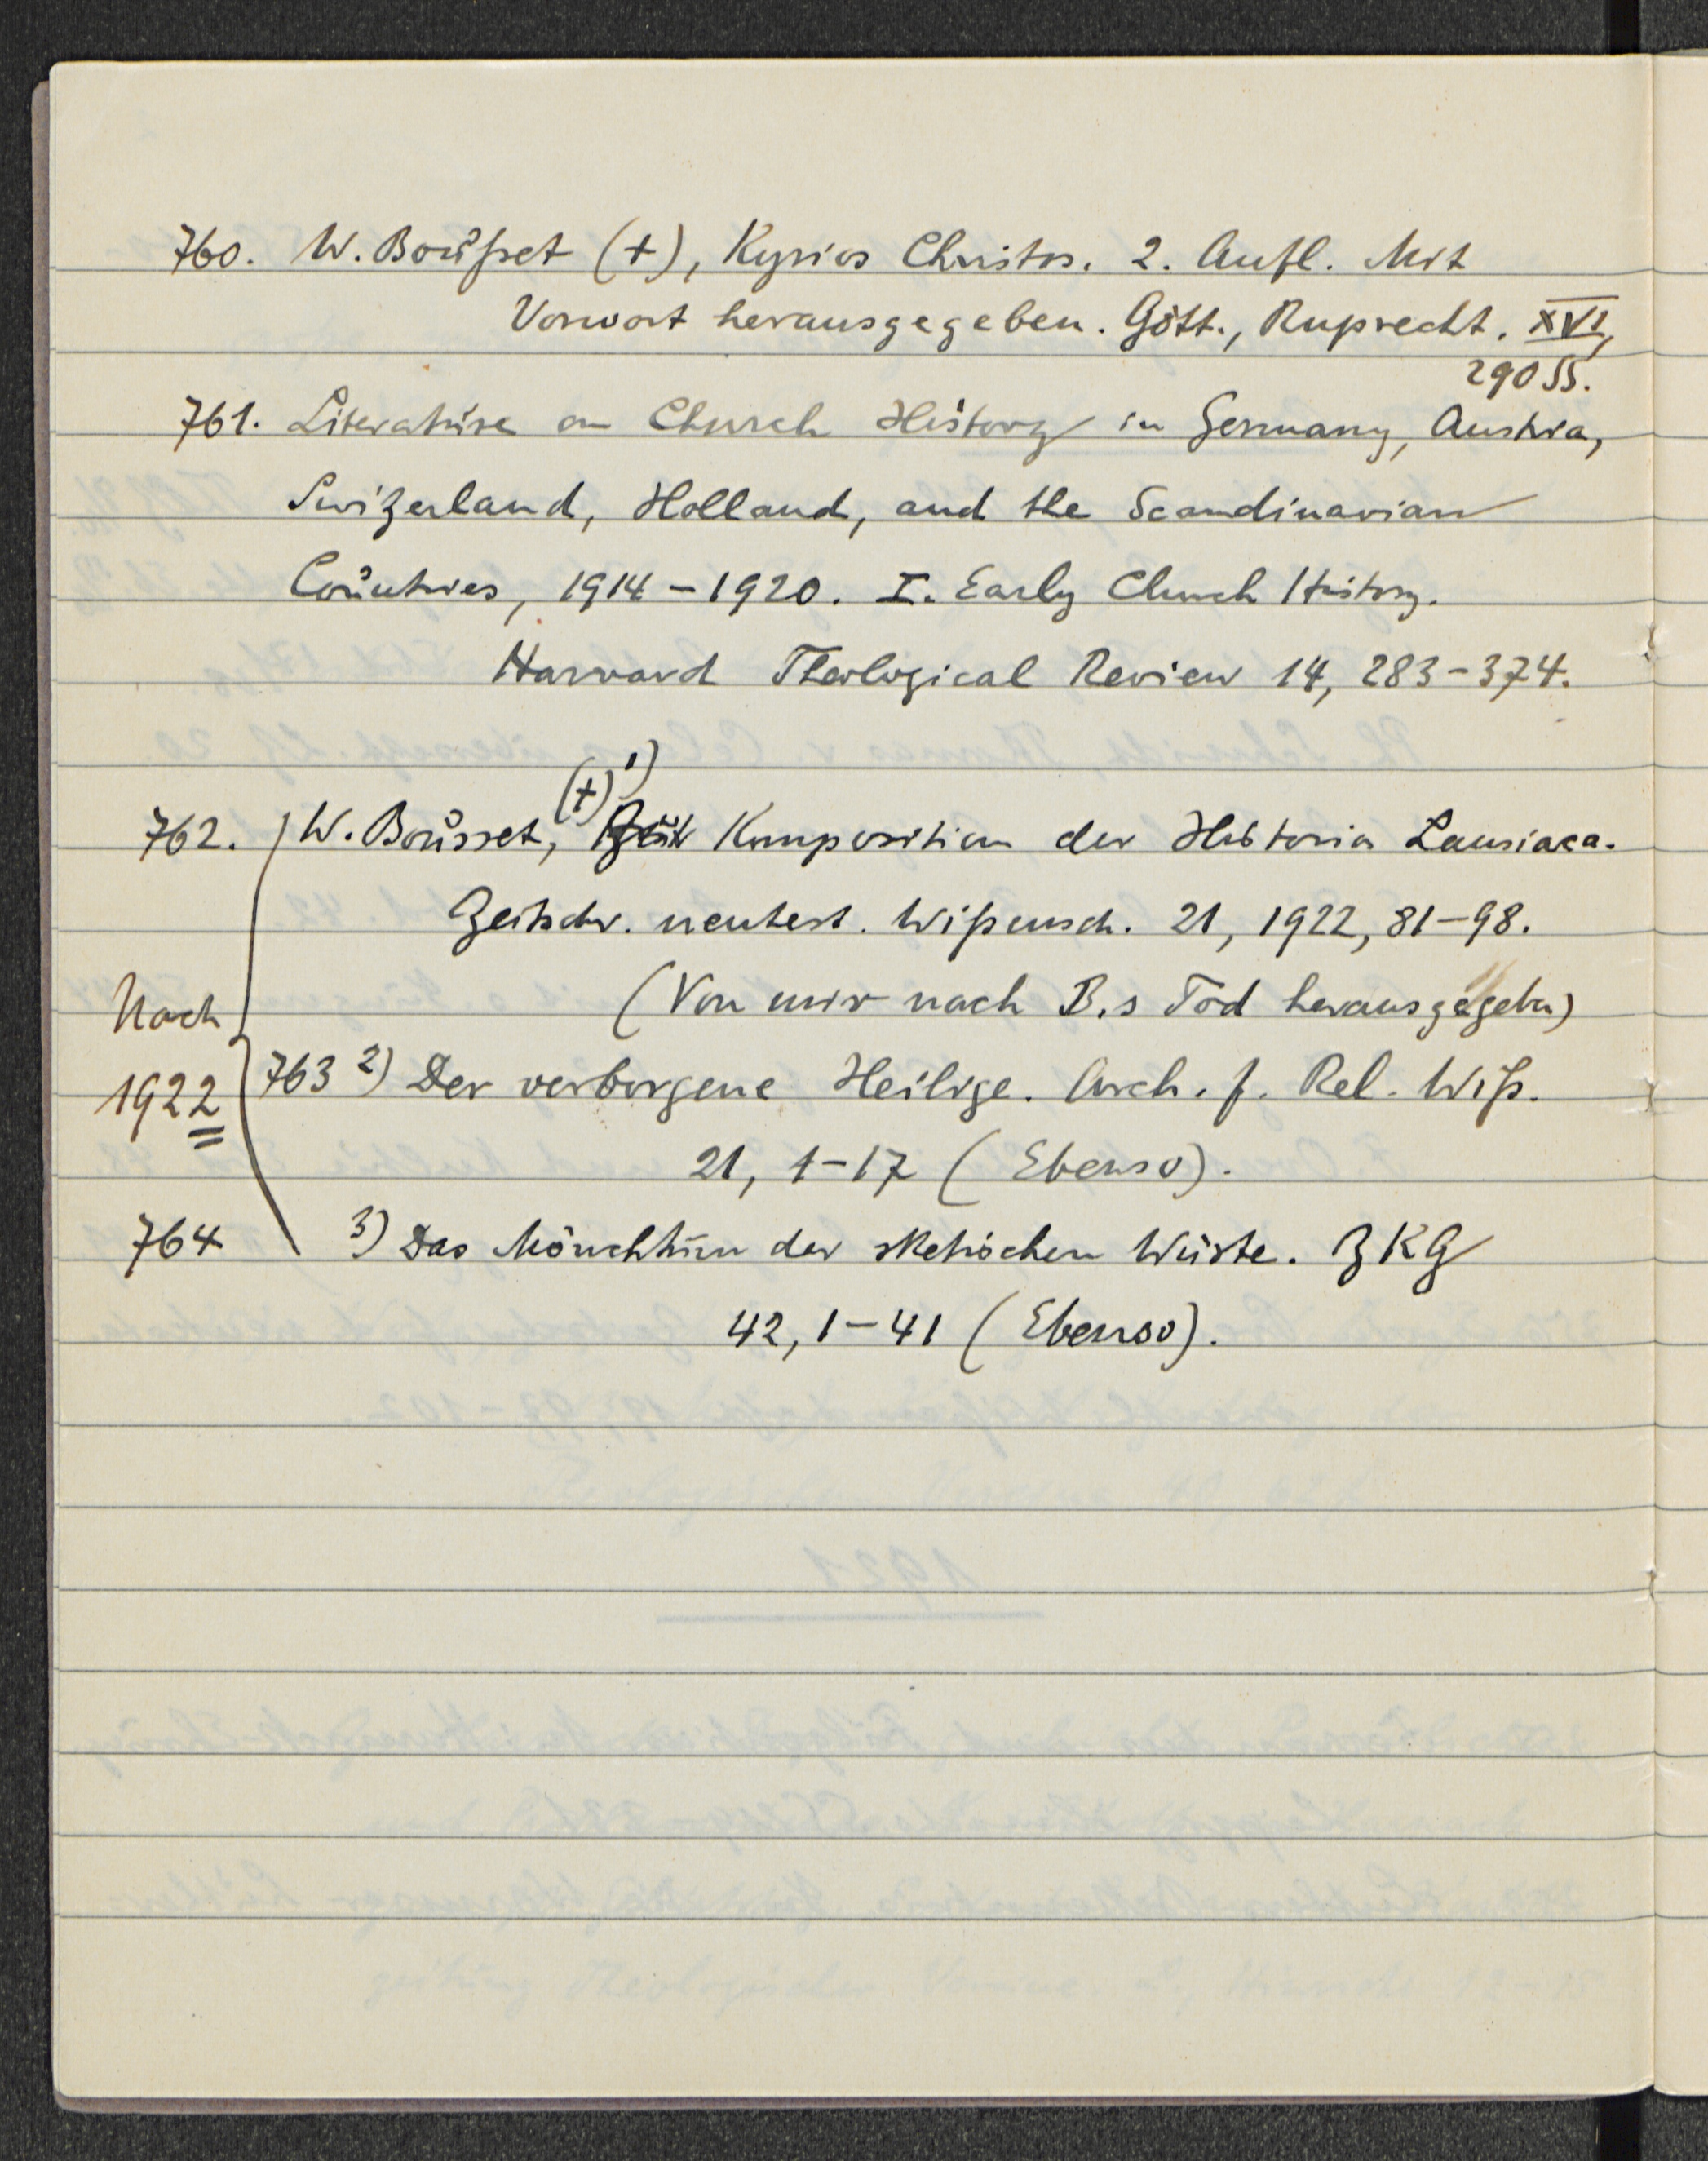 760. W. Boußet (+), Kyrios Christos. 2. Aufl. Mit
Vorwort herausgegeben. Gött., Ruprecht. XVI,
290 SS.
761. Literature on Church History in Germany, Austria,
Switzerland, Holland, and the Scandinavian
Countries, 1914-1920. I. Early Church History.
Harvard Theological Review 14, 283-374.
762. W. Bousset, (+) 1) Komposition der Historia Lausiaca.
Zeitschr. neutest. Wißensch. 21, 1922, 81-98.
(Von mir nach B.s Tod herausgegeben)
Nach
1922
763 2) Der verborgene Heilige. Arch. f. Rel. Wiß.
21, 1-17 (Ebenso).
764 3) Das Mönchtum der sketischen Wüste. ZKG
42, 1-41 (Ebenso).